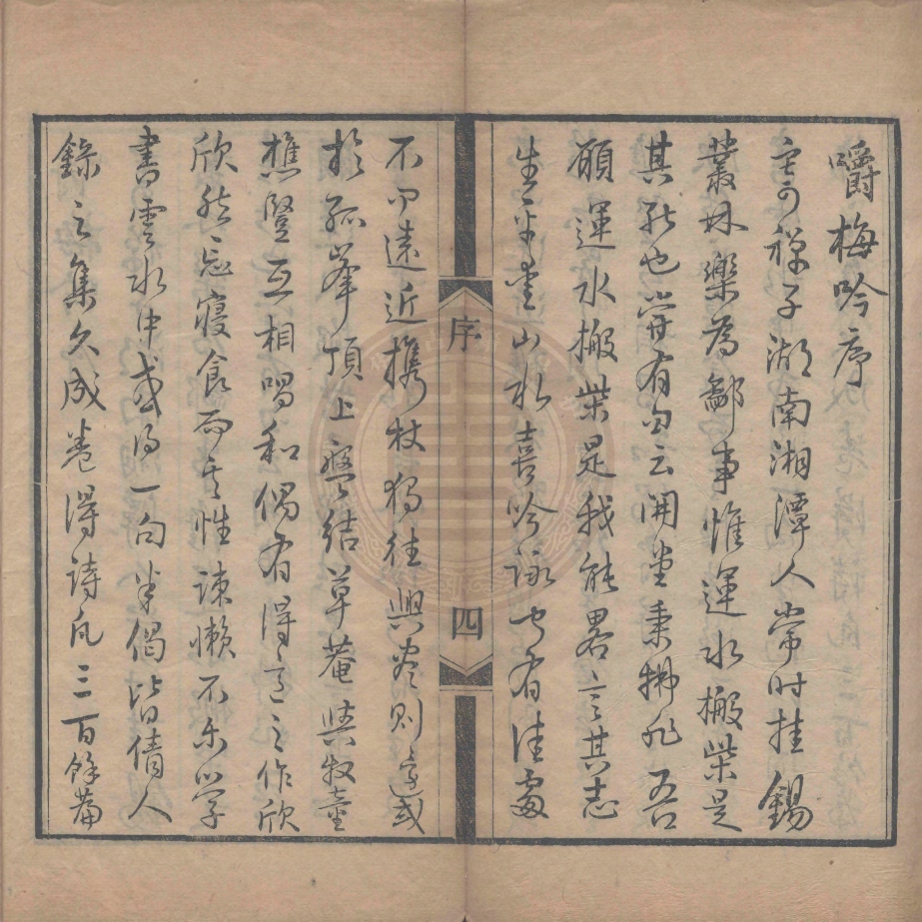 嚼梅吟序
寄禪子湖南湘潭人常时挂錫
叢林樂為鄙事惟運水搬柴是
其能也嘗有句云開堂秉拂非吾
願運水搬柴是我能畧言其志
生平愛山水喜吟詠它有佳處
序
四
不問遠近携杖獨往興盡則返或
於孤峯頂上盤結草菴與牧童
樵豎互相唱和偶有得意之作欣
欣然忘寢食而其性疎懶不樂學
書雲水中或得一句半偈皆倩人
錄之集久成卷得詩凡三百餘篇